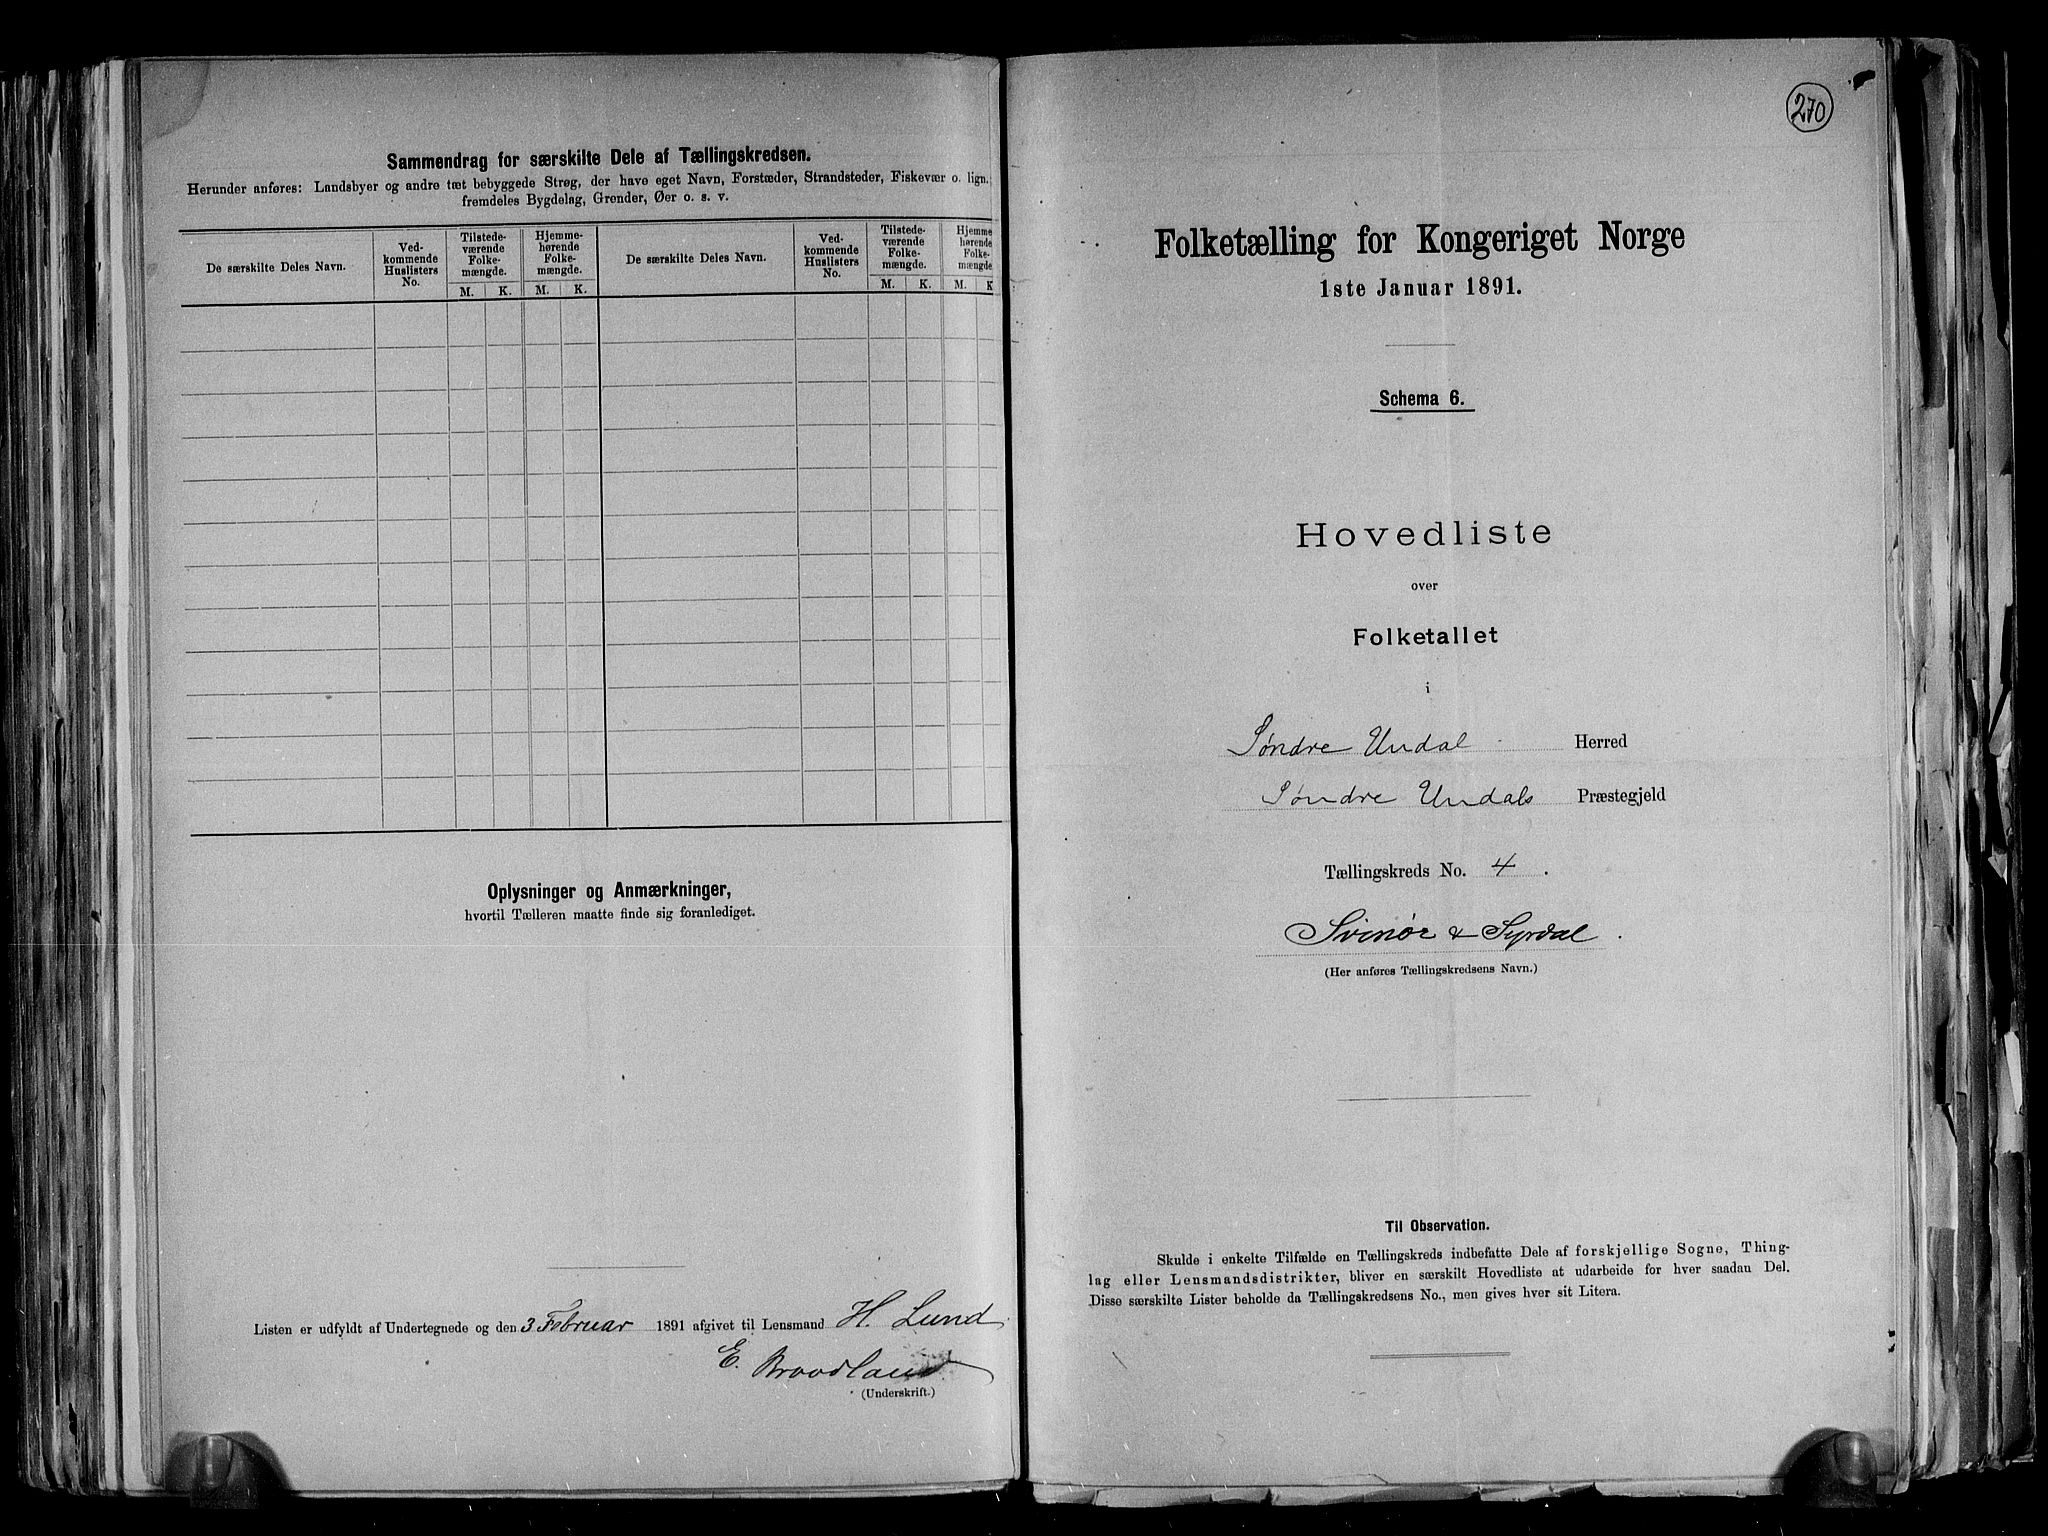 Sammendrag for særskilte Dele af Tællingskredsen.
Herunder anføres: Landsbyer og andre tæt bebyggede Strøg, der have eget Navn, Forstæder, Strandsteder, Fiskevær o. lign.
fremdeles Bygdelag, Grender, Øer o. s. v.
De særskilte Deles Navn.
Ved-
kommende
Huslisters
No.
Tilstede-
værende
Folke-
mængde.
Hjemme-
hørende
Folke-
mængde.
De særskilte Deles Navn.
Ved-
kommende
Huslisters
No.
Tilstede-
værende
Folke-
mængde.
Hjemme
hørende
Folke-
mængde
M. K. M. K. M. K. M. K
Oplysninger og Anmærkninger,
hvortil Tælleren maatte finde sig foranlediget.
Listen er udfyldt af Undertegnede og den 3 Februar 1891 afgivet til Lensmand H. Lund
E. Broodland
(Underskrift.)
270
Folketælling for Kongeriget Norge
1ste Januar 1891.
Schema 6.
Hovedliste
over
Folketallet
i
Søndre Undal Herred
Søndre Undals Præstegjeld
Tællingskreds No. 4.
Svinør & Syrdal.
(Her anføres Tællingskredsens Navn.)
Til Observation.
Skulde i enkelte Tilfælde en Tællingskreds indbefatte Dele af forskjellige Sogne, Thing-
lag eller Lensmandsdistrikter, bliver en særskilt Hovedliste at udarbeide for hver saadan Del.
Disse særskilte Lister beholde da Tællingskredsens No., men gives hver sit Litera.